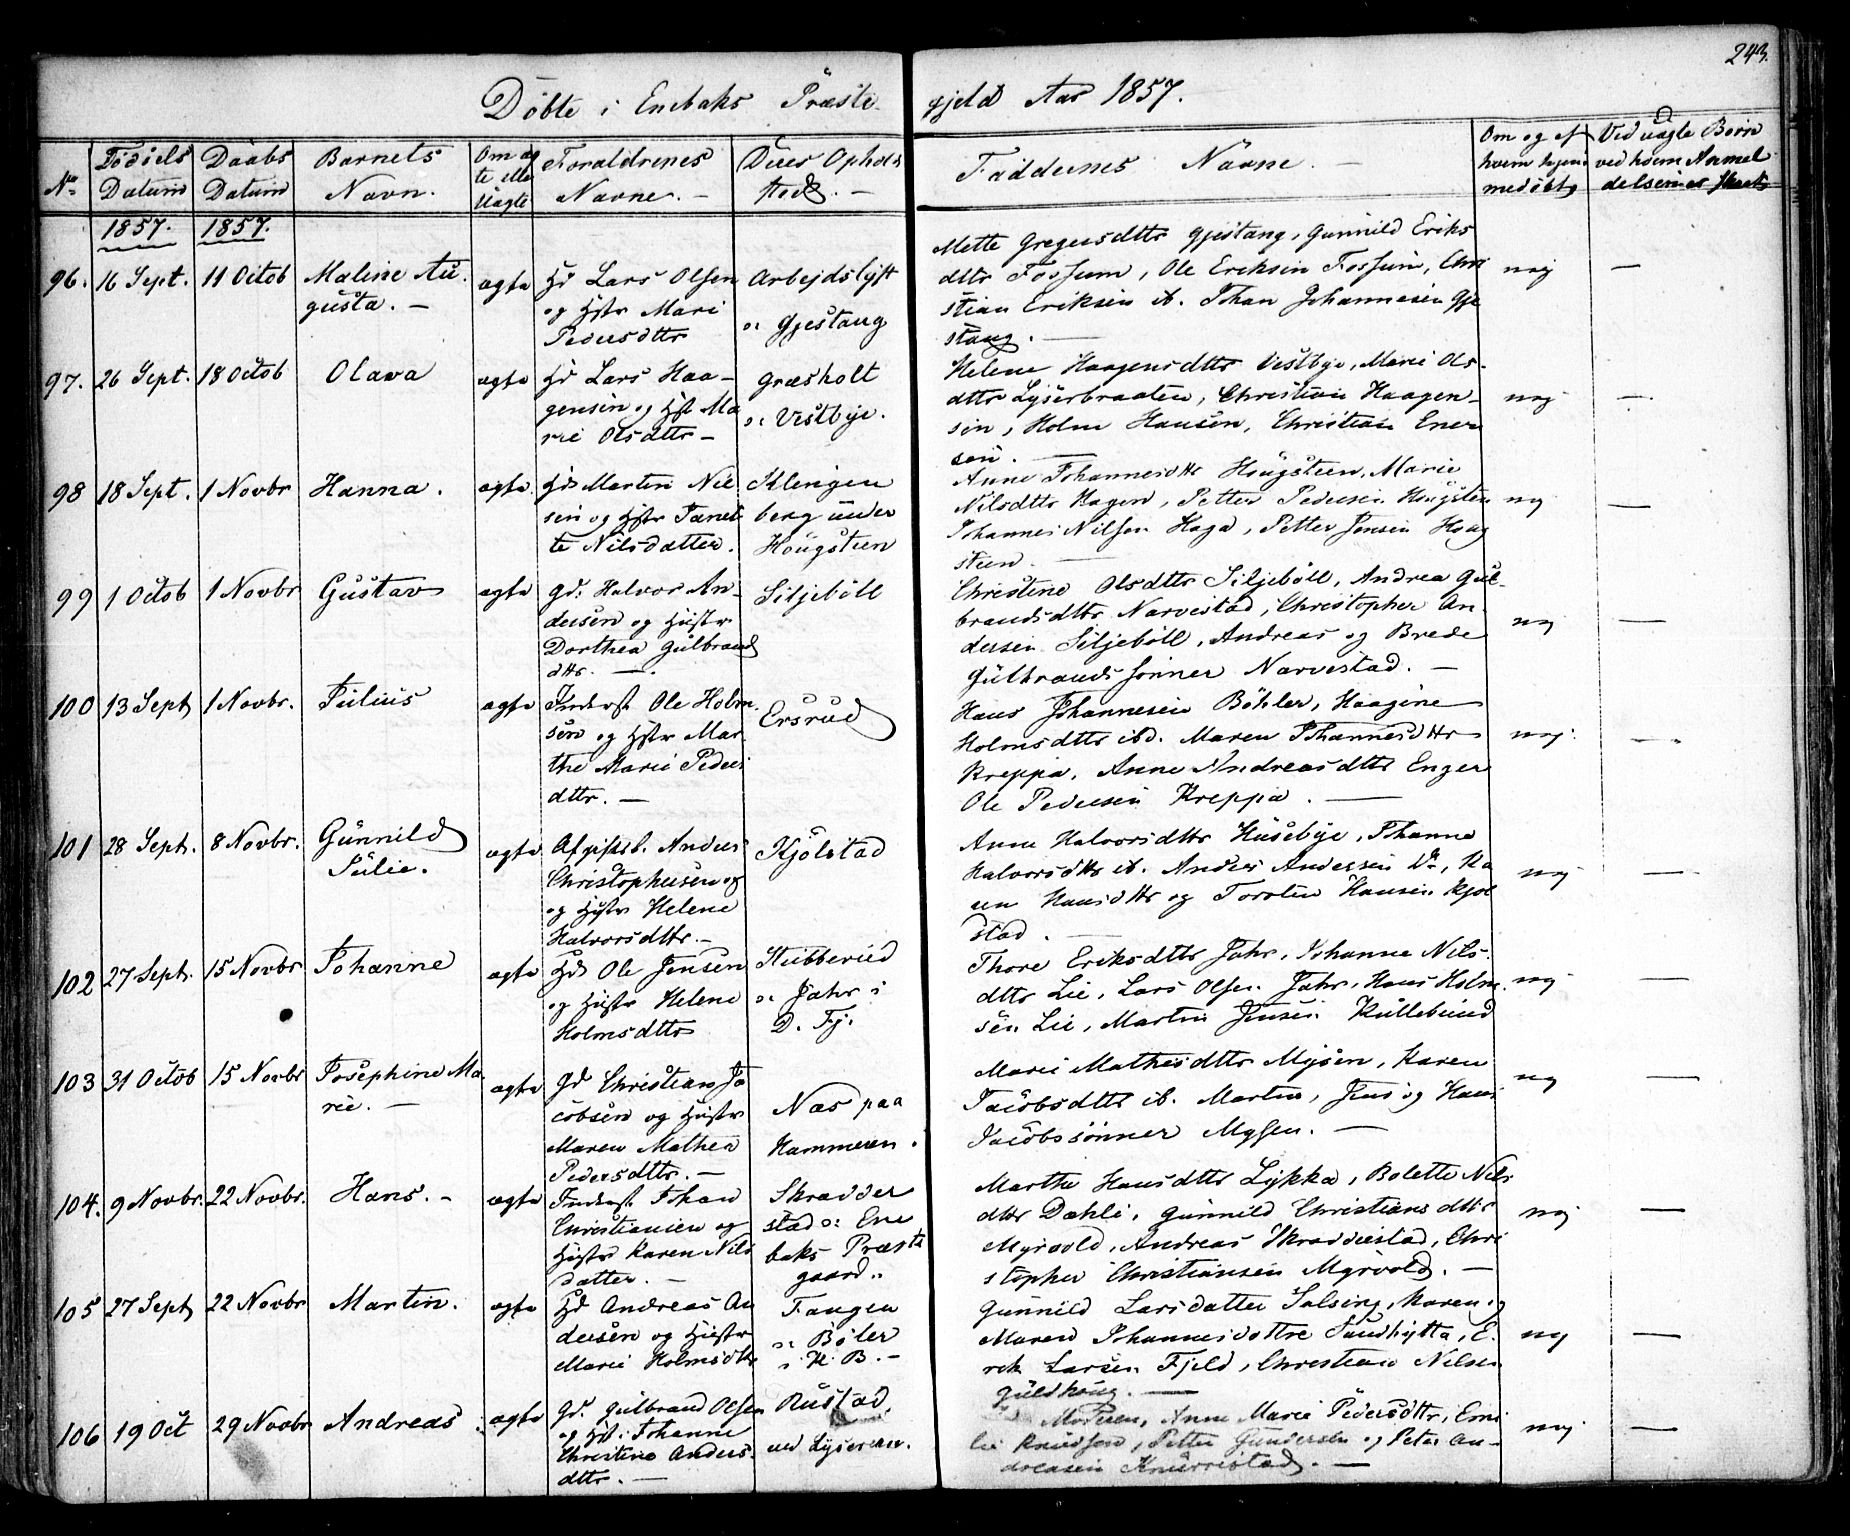 243.
Döbte i Enebaks Præste-
gjeld Aar 1857.
No
Födsels Datum
Daabs Datum
Barnets Navn.
Om ægte eller Uægte
Forældrenes Navne. —
Deres Opholdssted. —
Faddernes Navne. —
Om og af hvem hjemmedöbt
Ved uægte Börn ved hvem Anmeldelsen er skeet
1857. 1857.
96. 16 Sept. 11 Octob Maline Au-
gusta. —
ægte
Hd Lars Olsen
og Hstr Mari
Pedersdttr
Arbejdslyst
o: Gjestang
Mette Gregersdttr Gjestang, Gunnild Eriks
dttr Fossum, Ole Eriksen Fossum, Chri
stian Eriksen ib. Johan Johannesen Gje
stang. —
nej —
97. 26 Sept. 18 Octob Olava
ægte
Hd Lars Haa-
gensen og Hst Ma
rie Olsdttr —
Græsholt
o: Vestbye.
Helene Haagensdttr Vestbye, Marie Ols-
dttr Lyserbraaten, Christian Haagen-
sen, Holm Hansen, Christian Ener
sen. —
nej —
98 18 Sept. 1 Novbr Hanna.
ægte
Hd Martin Niel
sen og Hstr Janet
te Nilsdatter.
Klingen
berg under
Hougsteen
Anne Johannesdttr Hougsteen, Marie
Nilsdttr Hagen, Petter Pedersen Hougsten
Johannes Nilsen Haga, Petter Jensen Houg
steen. —
nej —
99 1 Octob 1 Novbr Gustav
ægte
Gd. Halvor An-
dersen og Hustr
Dorthea Gulbrand
dttr. —
Siljeböll
Christine Olsdttr Siljeböll, Andrea Gul-
brandsdttr Narvestad, Christopher An-
dersen Siljeböll, Andreas og Brede
Gulbrands Sönner Narvestad. —
nej —
100 13 Sept 1 Novbr. Julius
ægte
Inderst Ole Holm-
sen og Hstr Mar
the Marie Peders
dttr. —
Ersrud
Hans Johannesen Böhler, Haagine
Holmsdttr ibd. Maren Johannesdttr
Kreppa, Anne Andreasdttr Enger
Ole Pedersen Kreppa. —
nej. —
101 28 Sept. 8 Novbr. Gunnild
Julie.
ægte
Afgifts b. Anders
Christophersen og
og Hustr Helene
Halvorsdttr. —
Kjölstad
Anne Halvorsdttr Husebye, Johanne
Halvorsdttr ib. Anders Andersen Do, Ka
ren Hansdttr og Torsten Hansen Kjöl
stad. —
nej —
102 27 Sept. 15 Novbr Johanne
ægte
Hd Ole Jensen
og Hustr Helene
Holmsdttr
Stubberud
o: Jahr i
D. Fj.
Thore Eriksdttr Jahr, Johanne Nils-
dttr Lie, Lars Olsen Jahr, Hans Holm-
sen Lie, Martin Jensen Kullebund
nej —
103 31 Octob 15 Novbr Josephine Ma
rie. —
ægte
Gd Christian Ja
cobsen og Hustr
Maren Mathea
Pedersdttr. —
Næs paa
Hammeren.
Marie Mathesdttr Mysen, Karen
Jacobsdttr ib. Martin, Jens og Hans
Jacobssönner Mysen. —
nej —
104. 9 Novbr. 22 Novbr. Hans. —
ægte
Inderst Johan
Christiansen og
Hustr Karen Nils
datter. —
Skrædder
stad o: Ene
baks Præste
gaard..
Marthe Hansdttr Lykka, Bolette Nils
dttr Dæhli, Gunnild Christiansdttr
Myrvold, Andreas Skrædderstad, Chri
stopher Christiansen Myrvold. —
nej —
105 27 Sept 22 Novbr Martin.
ægte
Hd Andreas An
dersen og Hustr
Marie Holmsdttr
Tangen
o: Böler
i K. B. —
Gunnild Larsdatter Solsing, Karen og
Maren Johannesdottre Sundhytta, E-
rik Larsen Fjeld, Christian Nilsen
Guldhoug. —
nej —
106 19 Oct 29 Novbr Andreas.
ægte
Gd. Gulbrand Olsen
og Hst. Johanne
Christine Anders-
dttr. —
Rustad,
ved Lyseren.
Moderen, Anne Marie Pedersdttr, Emi
lie Knudsen, Petter Gundersen og Peter An-
dreasen Knurrestad. —
nej —